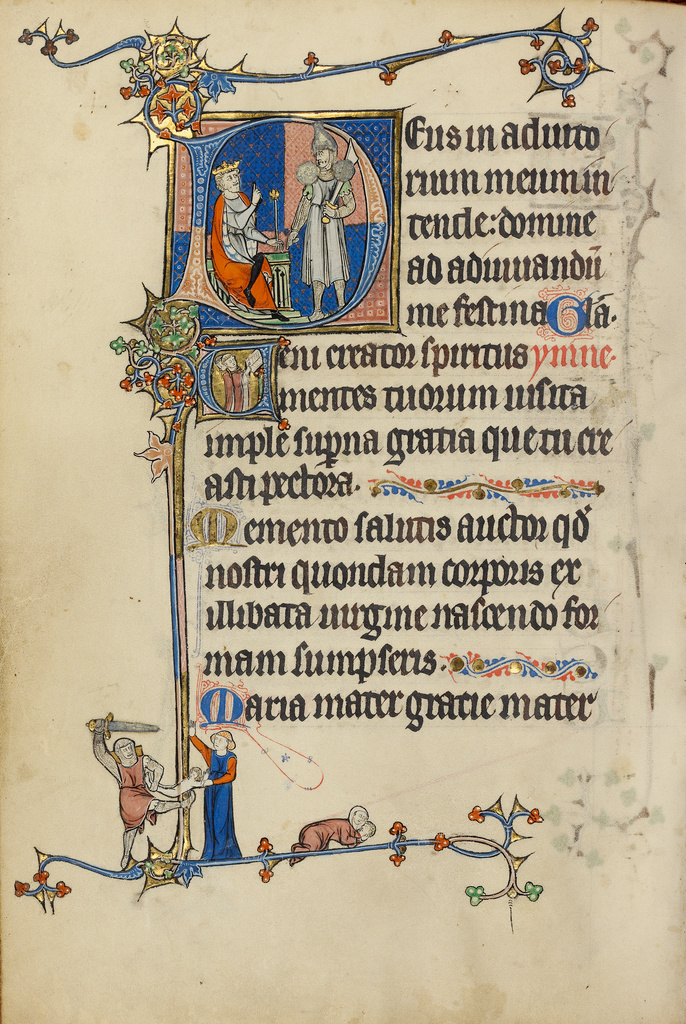 Deus in adiuto
rium meum in
tende: domine
ad adiuuandū
me festina Glā.
Veni creator spiritus ymne.
mentes tuorum uisita
imple sup̄na gratia que tu cre
asti pectora.
Memento salutis auctor qd̄
nostri quondam corporis ex
illibata uirgine nascendo for
mam sumpseris.
Maria mater gratie mater